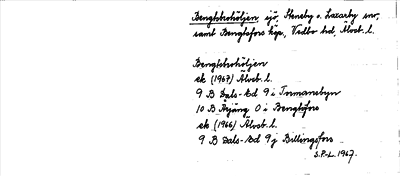 Bengtsbrohöljen, sjö, Steneby o. Laxarby snr,
samt Bengtsfors köp., Vedbo hd, Älvsb. l.
Bengtsbrohöljen
ek (1967) Älvsb. l.
9 B Dals-Ed 9 i Tormansbyn
10 B Årjäng 0 i Bengtsfors
ek (1966) Älvsb. l.
9 B Dals-Ed 9 j Billingsfors
S.P.-L. 1967.